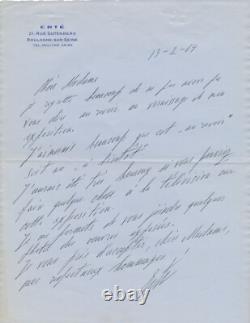 ERTÉ
21, RUE GUTENBERG
BOULOGNE-SUR-SEINE
13-2-67
Chère Madame
Je regrette beaucoup de ne pas avoir pu
vous dire au revoir au vernissage de mon
exposition.
J'aimerais beaucoup que cet "au revoir"
soit un "à bientôt"
J'aurais été très heureux si vous pouviez
faire quelque chose à la télévision sur
cette exposition.
Je me permets de vous joindre quelques
photos des œuvres exposées.
Je vous prie d'accepter, chère Madame,
mes respectueux hommages
Erté